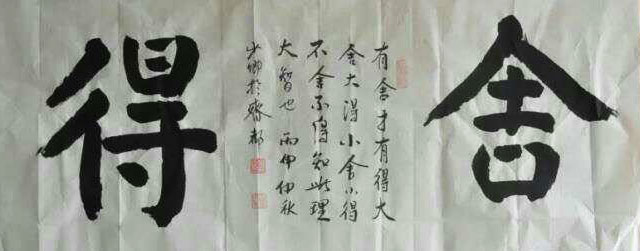 舍
有舍才有得大
舍大得小舍小得
不舍不得知此理
大智也 丙申仲秋
少卿於齊都
得